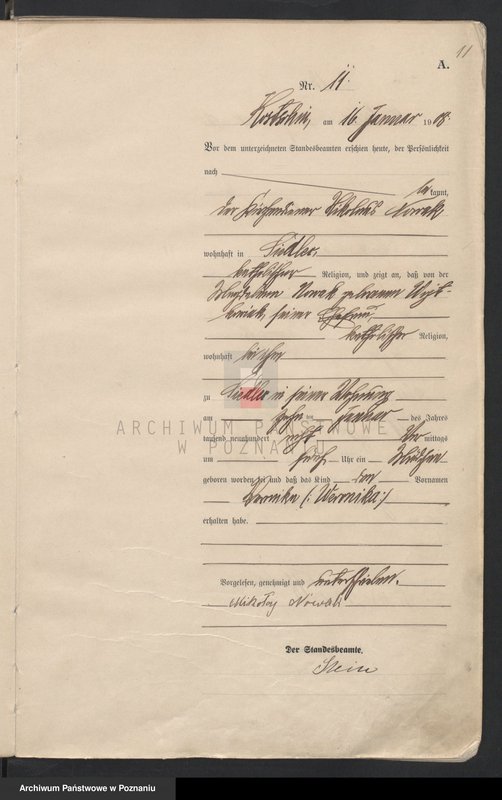 11
A.
Nr. 11
am 16. Januar 1908.
Vor dem unterzeichneten Standesbeamten erschien heute, der Persönlichkeit
nach
be kannt,
der Kirchendiener Nikolaus Nowak
wohnhaft in Siedlec,
katholischer Religion, und zeigt an, daß von der
Magdalena Nowak geborenen
seiner Ehefrau,
katholischer Religion,
wohnhaft bei ihm
zu Siedlec in seiner Wohnung
am zehn ten Januar des Jahres
tausend neunhundert acht Vor mittags
um fünf Uhr ein Mädchen
geboren worden sei und daß das Kind den Vornamen
Veronika (: Weronika :)
erhalten habe.
Vorgelesen, genehmigt und unterschrieben.
Mikołaj Nowak
Der Standesbeamte.
Stein
ARCHIWUM PAŃSTWOWE
W POZNANIU
Archiwum Państwowe w Poznaniu